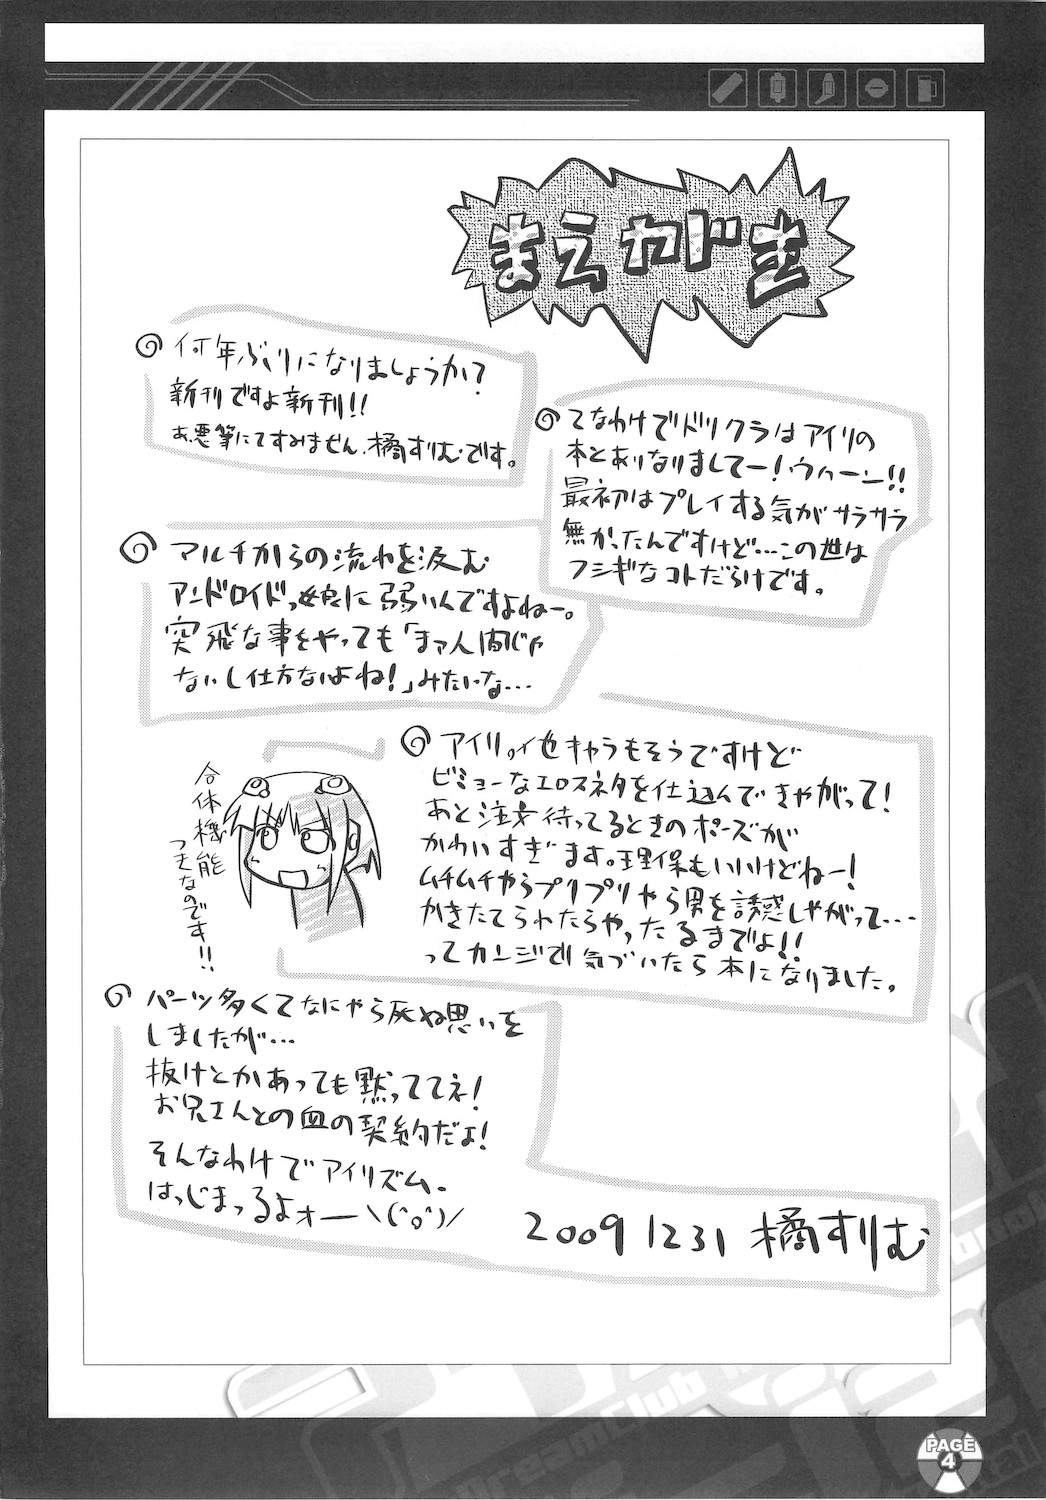 まえがき
何年ぶりになりましょうか?
新刊ですよ新刊!!
あ、悪筆にてすみません、橘すりむです。
てなわけでドリクラはアイリの
本とありなりましてー!ウゥーン!!
最初はプレイする気がサラサラ
無かったんですけど…この世は
フシギなコトだらけです。
マルチからの流れを汲む
アンドロイドっ娘に弱いんですよねー。
突飛な事をやっても「まァ人間じゃ
ないし仕方ないよね!」みたいな…
アイリィ他キャラもそうですけど
ビミョーなエロスネタを仕込んできやがって!
あと注文待ってるときのポーズが
かわいすぎます。理保もいいけどねー!
ムチムチやらプリプリやら男を誘惑しやがって…
かきたてられたらやったるまでよ!!
ってカンジで気づいたら本になりました。
合体機能
つきなのです!!
パーツ多くてなにやら死ぬ思いを
しましたが…
抜けとかあっても黙っててネ!
お兄さんとの血の契約だよ!
そんなわけでアイリズム、
はっじまっるよォー＼(゜o゜)／
2009 1231 橘すりむ
PAGE
4